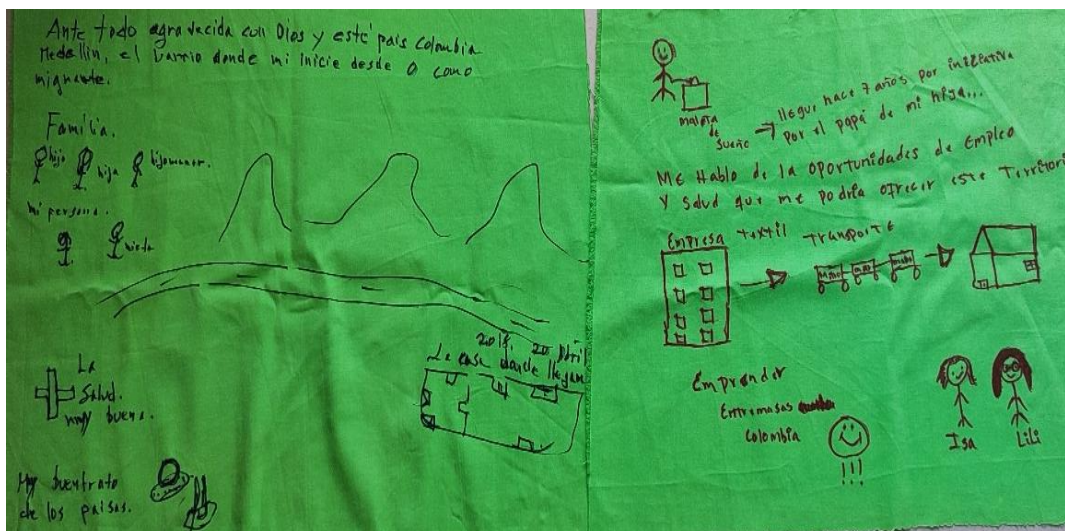 Ante todo agradecida con Dios y este país Colombia
Medellín, el barrio donde mi inicie desde 0 como
migrante.
Familia.
hijo
hija
hijo menor.
mi persona.
nieta
La
Salud.
muy buena.
2018. 20 Abril
La casa donde llegam
Muy buen trato
de los paisas.
maleta
de
sueño
llegue hace 7 años por iniciativa
por el papá de mi hija...
ME Hablo de la oportunidades de Empleo
Y salud que me podria ofrecer este Territori
Empresa textil transporte
metro
Emprender
Entremasas
Colombia
!!!
Isa
LiLi